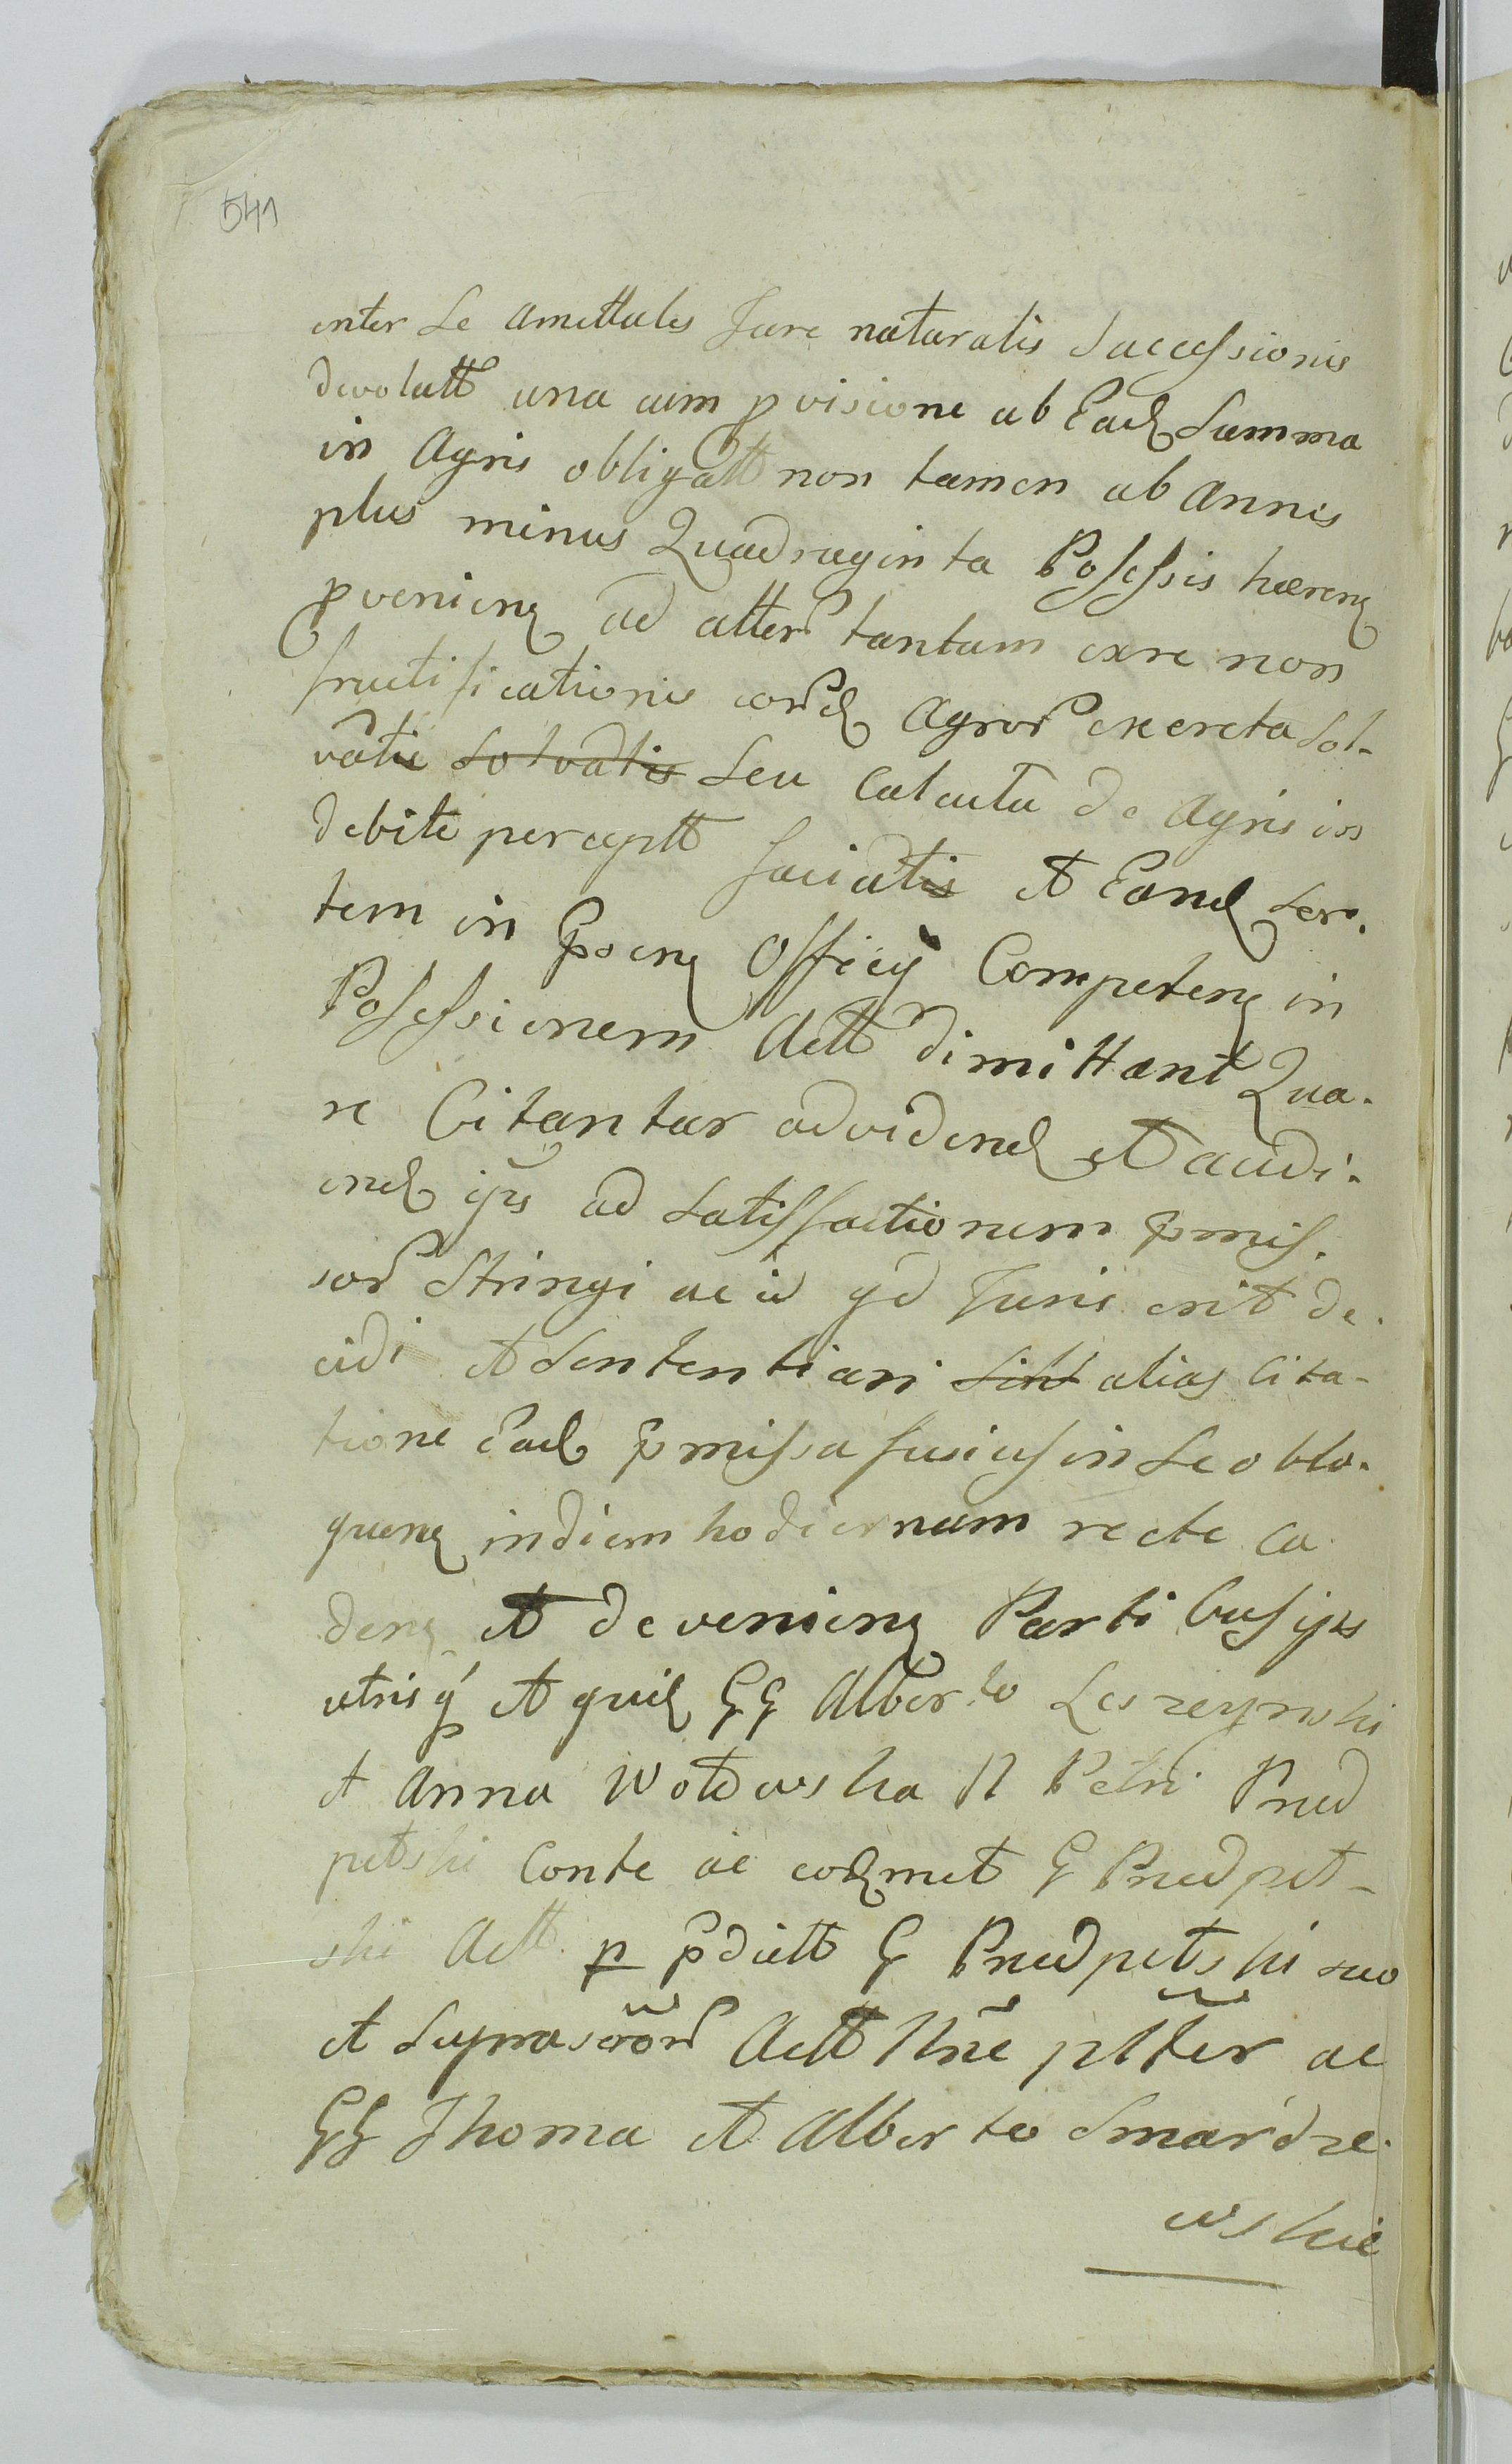 541
inter Se amittales Jure naturalis Successionis
devolutt una cum pvisione ab Ead Summa
in Agris obligatt non tamen ab annis
plus minus Quadraginta Possessis hæreng
pvenieng ad alter tantum exre non
fructificationis eord Agror excreta Sol-
vatis Solvatis Seu Calculu de Agris in
debite perceptt faciatis et Eand Sor.
tem in pseng Officij Competeng in
Possessionem Actt dimittant Qua.
re Citantur advidend et audi.
end ijs ad Satisfactionem pmis.
sor Stringi ac id qd Juris erit de.
cidi et Sententiari alias Cita-
tione Ead pmissa fusius in Se oblo.
queng indiem hodiernum recte Ca
deng et devenieng Partibus ijs
utrisq et quid GG Alberto Leszczynski
et Anna Wotowska N Petri Prud
petski Conte ac eodmet G Prudpet-
ski Actt p pdictt G Prudpetski suo
et Suprascror Actt Nne pltter ac
GG Thoma et Alberto Smardze.
wskie